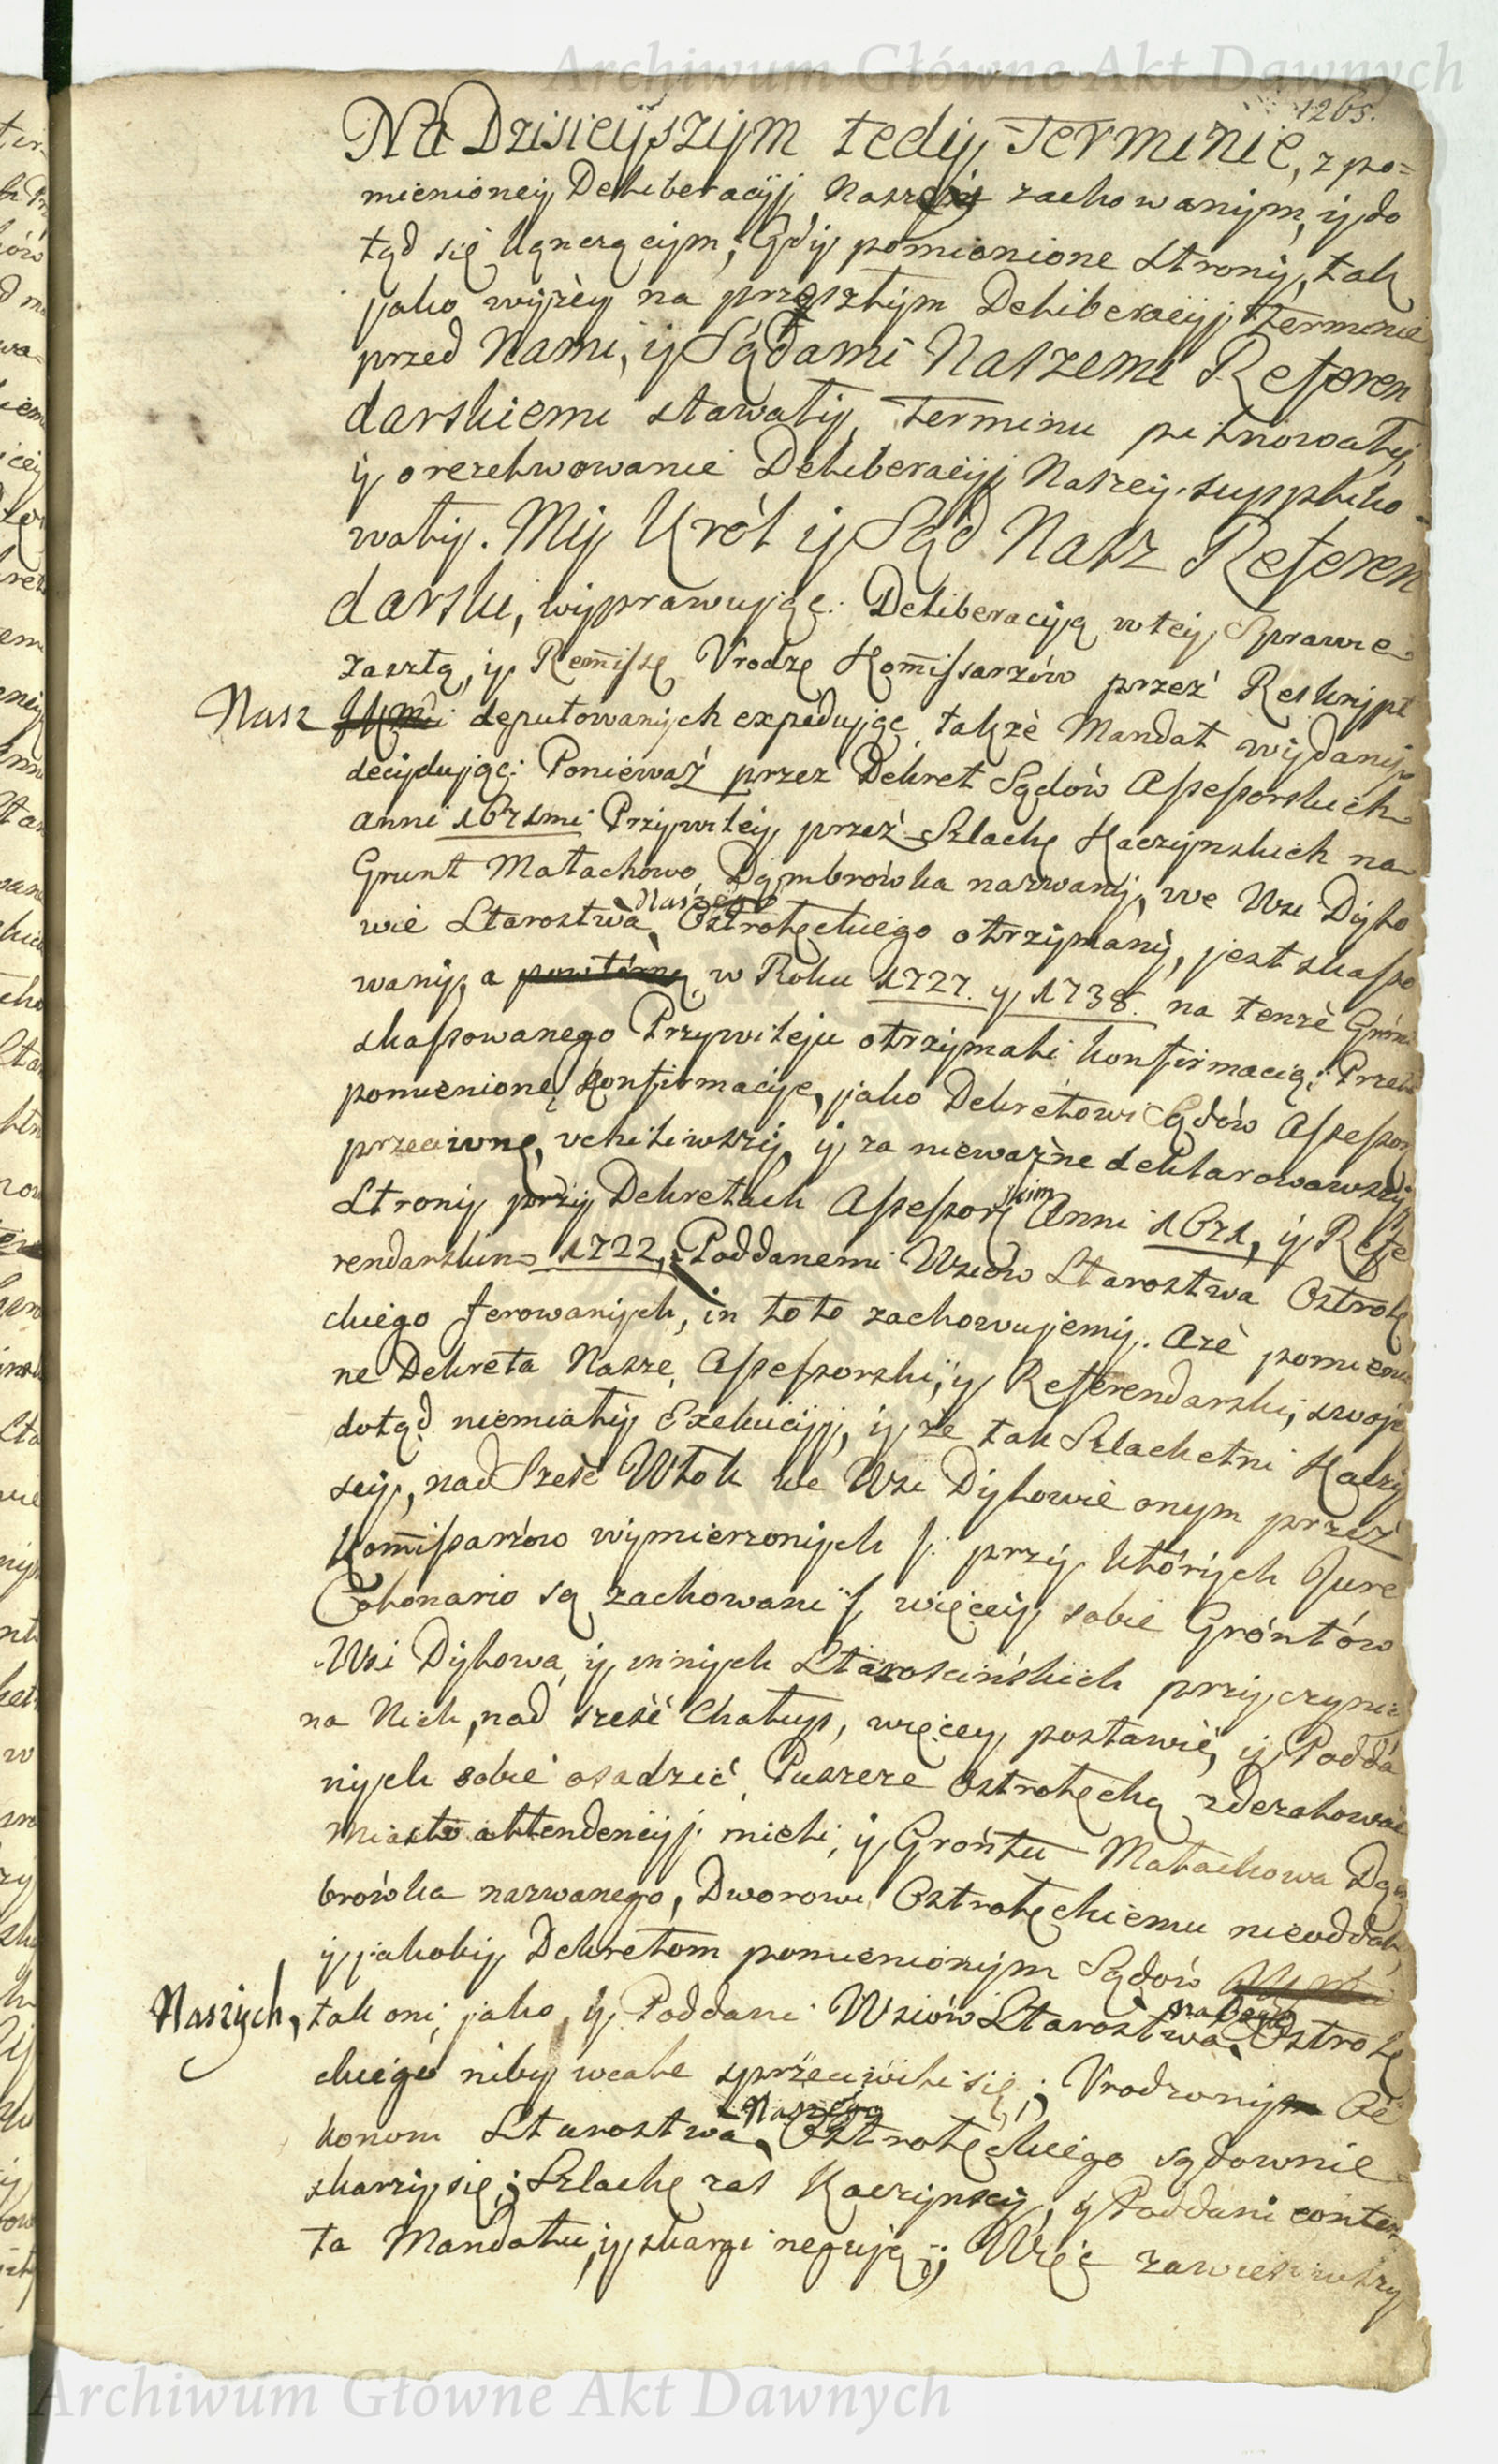 Archiwum Główne Akt Dawnych
1265.
Na Dzisieÿszÿm tedÿ Terminie, z po=
mienioneÿ Deliberacÿÿ Naszeÿ zachowanÿm, ÿ do
tąd się kączącÿm; Gdÿ pomienione stronÿ, tak
jako wÿżeÿ na przeszłÿm Deliberacÿÿ Terminie
przed Nami, ÿ Sądami Naszemi Referen
darskiemi stawałÿ, Terminu pilnowałÿ,
ÿ o rezolwowanie Deliberacÿÿ Naszeÿ suppliko=
wałÿ. Mÿ Król ÿ Sąd Nasz Referen
darski, wÿprawując Deliberacÿją w teÿ Sprawie
zaszłą, ÿ Remissę Vrodze Komissarzów przez Reskrÿpt
Nasz deputowanÿch expedując, także Mandat wÿdanÿ
decÿdując: Ponieważ przez Dekret Sądów Assessorskich
anni 1671mi Przÿwileÿ przez Szlachę Kaczÿnskich na
Grunt Małachowo Dąmbrówka nazwanÿ, we Wsi Dÿlo
wie Starostwa Naszego Ostrołęckiego otrzÿmanÿ, jest skasso
wanÿ, a powtórnę w Roku 1727. ÿ 1738. na tenże Grónt
skassowanego Przÿwileju otrzÿmali konfirmacią; Przeto
pomienionę Konfirmacÿe, jako Dekretowi Sądów Assessor
przeciwnę, vchiliwszÿ, ÿ za nieważne deklarowawszÿ
Stronÿ przÿ Dekretach Assessorskim Anni 1671, ÿ Refe
rendarskim 1722, Poddanemi Wsiów Starostwa Ostrołę
ckiego ferowanÿch, in toto zachowujemÿ. A że pomienio
ne Dekreta Nasze, Assessorski, ÿ Referendarski, swojeÿ
dotąd niemiałÿ Exekucÿÿ, ÿ że tak Szlachetni Kaczÿ
scÿ, nad Sześć Włok we Wsi Dÿlowie onym przez
Komissarzów wÿmierzonÿch /: przÿ którÿch Jure
Colonario są zachowani :/ więceÿ sobie Gróntów
Wsi Dÿlowa, ÿ innÿch Starościńskich przÿczÿnić
na Nich, nad sześć Chałup, więceÿ postawić, ÿ Podda
nÿch sobie osadzić, Puszcze Ostrołęcką zdezalować
miasto attendencÿÿ mieli, ÿ Gróntu Małachowa Dąm
brówka nazwanego, Dworowi Ostrołęckiemu nieoddali,
ÿ jakobÿ Dekretom pomienionÿm Sądów
Naszÿch, tak oni, jako ÿ Poddani Wsiów Starostwa Naszego Ostrołę
ckiego niby wcale sprzeciwili się; Vrodzonÿ Oe
konom Starostwa Naszego Ostrołęckiego sądownie
skarżÿ się; Szlachę zaś Kaczÿnscÿ, ÿ Poddani conten
ta Mandatu, ÿ skargi negują; Więc zawiesiwszy
Archiwum Główne Akt Dawnych